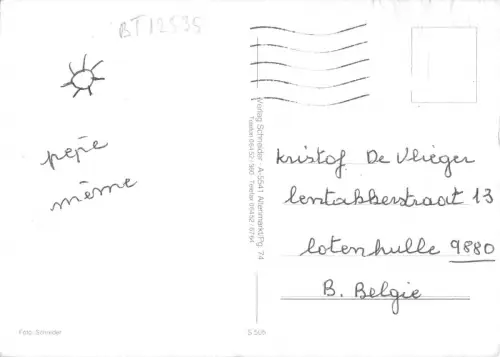 BT12535
pepe
mëme
Verlag Schneider · A-5541 Altenmarkt/Pg. 74
Telefon 06452/
Kristof De Vlieger
Lentakkerstraat 13
Lotenhulle 9880
B. Belgie
Foto: Schneider
S 505